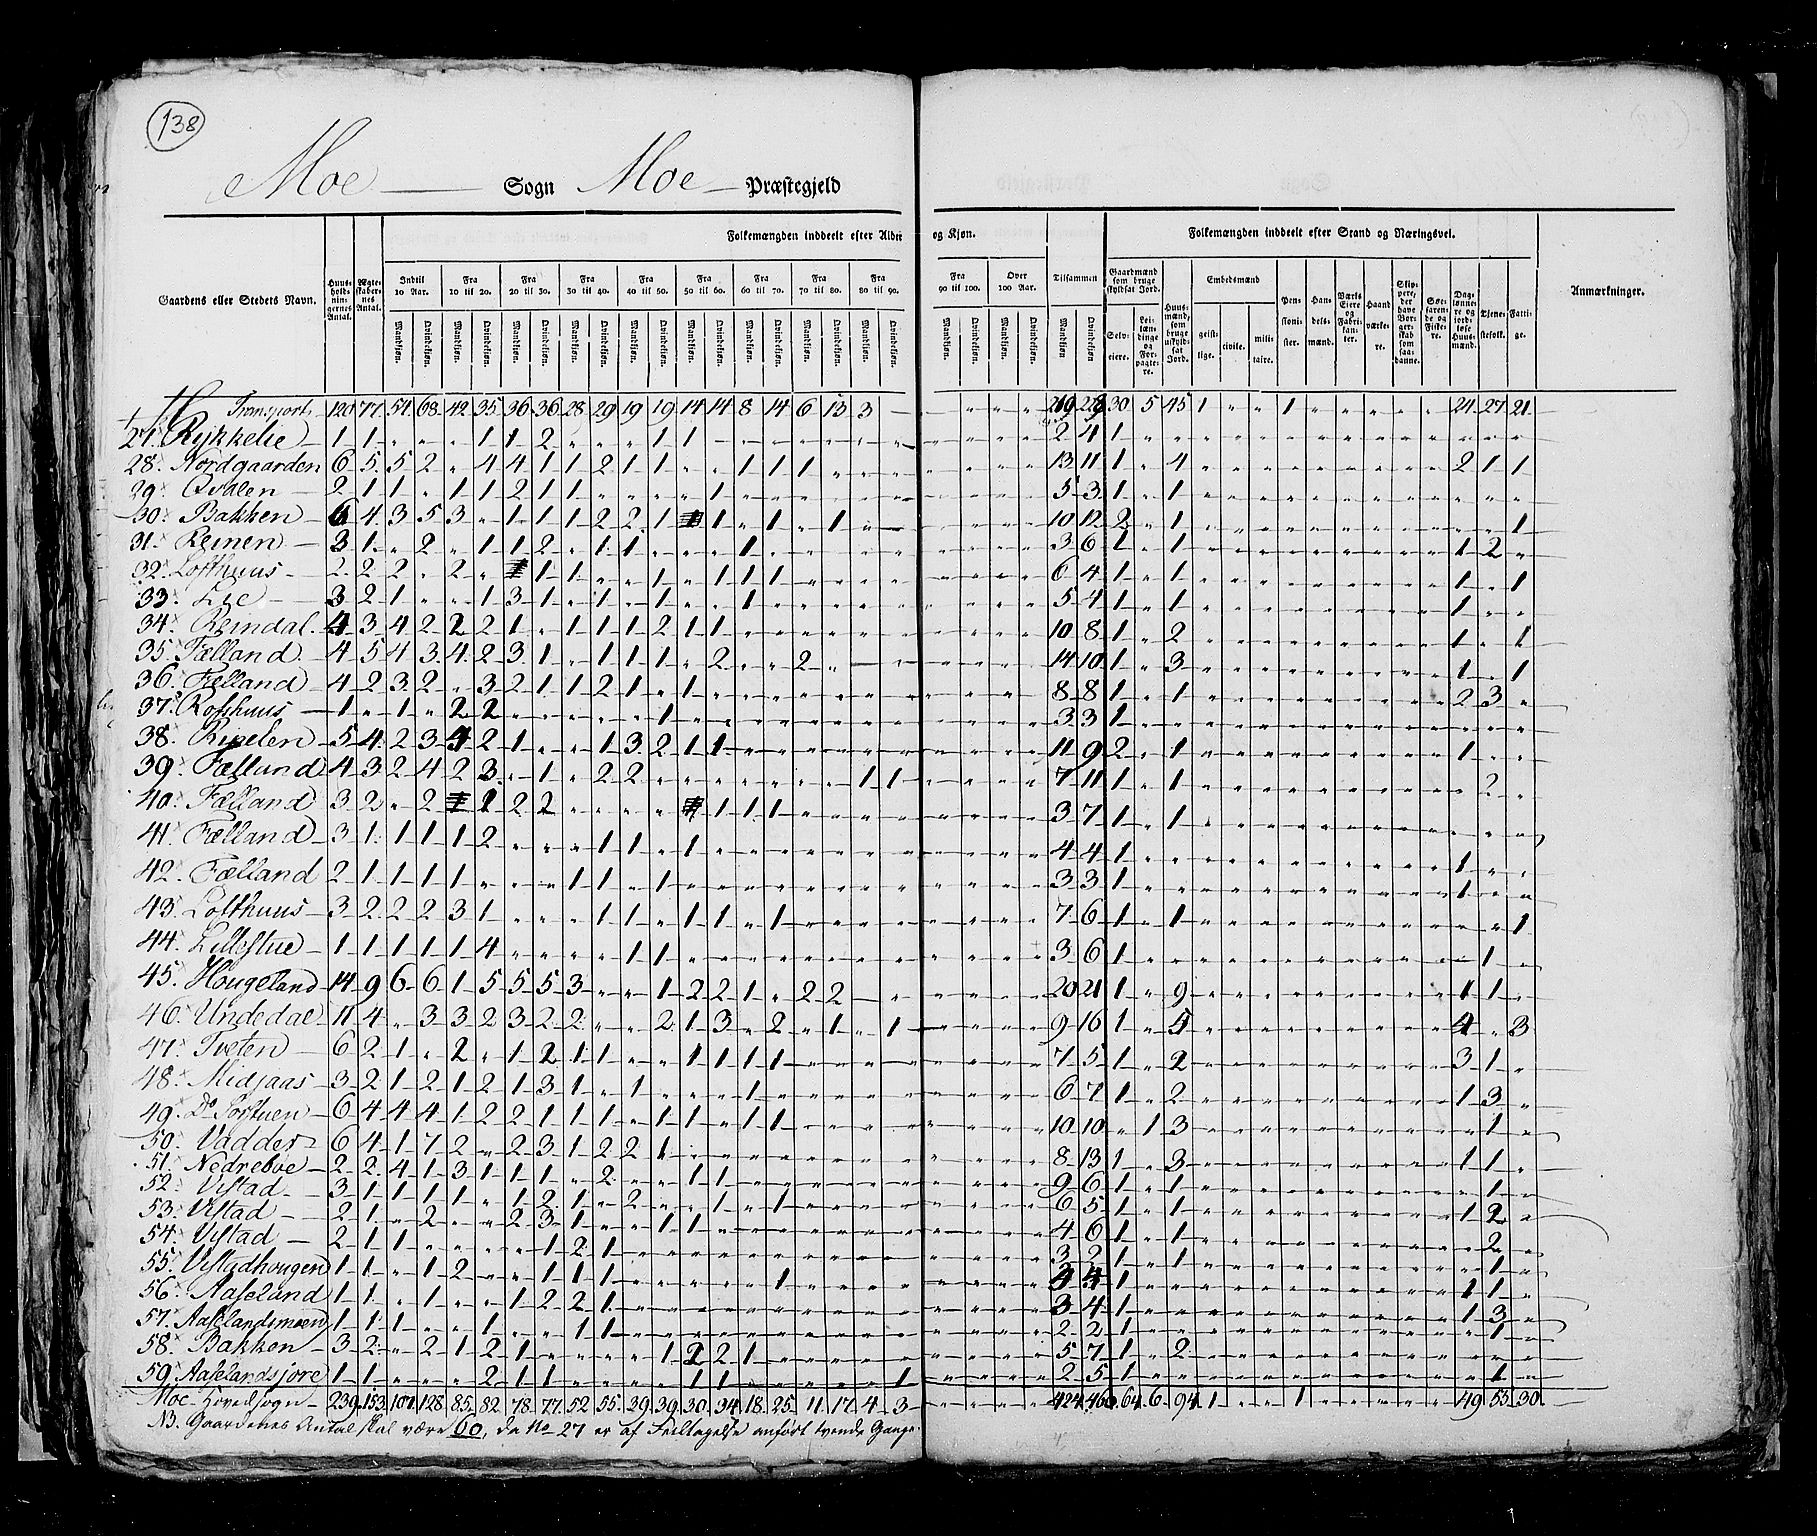 138
Moe Sogn Moe Præstegjeld
Folkemængden inddeelt efter Alder og Kjøn.
Folkemængden inddeelt efter Stand og Næringsvei.
Gaardens eller Stedets Navn.
Huusholdningernes Antal.
Ægteskabernes Antal.
Indtil 10 Aar.
Fra 10 til 20.
Fra 20 til 30.
Fra 30 til 40.
Fra 40 til 50.
Fra 50 til 60.
Fra 60 til 70.
Fra 70 til 80.
Fra 80 til 90.
Fra 90 til 100.
Over 100 Aar.
Tilsammen
Mandkjøn. Qvindekjøn.
Gaardmænd som bruge skyldsat Jord.
Selveiere.
Leilændinge og Forpagtere.
Huusmænd, som bruge uskyldsat Jord.
Embedsmænd
geistlige.
civile.
militaire.
Pensionister.
Handelsmænd.
Værks Eiere og Fabrikanter.
Haandværkere.
Skippere, der have Borgerskab som saadanne.
Søefarende og Fiskere.
Dagslønnere og jordløse Huusmænd.
Tjenestefolk.
Fattige.
Anmærkninger.
Transport 120 77 54 68 42 35 36 36 28 29 19 19 14 14 8 14 6 13 3 30 5 45 1 1 24 27 21
27. Rykkelie 1 1 1 1 2 1 1 2 4 1
28. Nordgaarden 6 5 5 2 4 4 1 1 2 1 1 1 1 1 13 11 1 4 2 1 1
29. Qvalen 2 1 1 1 1 2 1 1 1 5 3 1 1
30. Bakken 6 4 3 5 3 1 1 1 2 2 1 1 1 1 10 12 2 1 1
31. Reinen 3 1 2 1 1 2 1 1 1 3 6 1 1 1 2
32. Lofthuus 2 2 2 2 1 1 1 1 1 1 6 4 1 1 1 1
33. Lie 3 2 1 1 3 1 1 1 1 5 4 1 1 1
34. Reindal 4 3 4 2 2 2 1 1 1 1 2 1 1 10 8 1 2 1 1
35. Fælland 4 5 4 3 4 2 3 1 1 1 1 2 2 14 10 1 3 1 1
36. Felland 4 2 3 2 3 2 1 1 2 1 1 8 8 1 1 2 3
37. Kophuus 1 1 2 2 1 3 3 1
38. Ripelen 5 4 2 3 4 2 1 1 3 2 1 1 11 9 2 1 1
39. Fælland 4 3 2 4 2 3 1 2 2 1 1 7 11 1 1 2
40. Fælland 3 2 2 1 2 2 1 1 1 3 7 1 1
41. Fælland 3 1 1 1 1 2 1 1 1 4 4 1 1
42. Fælland 2 1 1 1 1 1 1 1 1 3 3 1 1
43. Lofthuus 3 2 2 2 3 1 1 1 1 1 1 7 6 1 1 1
44. Lillestue 1 1 1 1 1 4 1 1 3 6 1 1
45. Hougeland 14 9 6 6 1 5 5 5 3 1 2 2 1 2 2 20 21 1 9 1 1
46. Undedal 11 4 3 3 2 3 2 2 2 1 3 2 1 1 9 16 1 5 4 3
47. Tveten 6 2 1 2 1 2 1 1 1 1 1 1 7 5 1 2 3 1
48. Midjaas 3 2 1 2 1 2 1 3 1 1 1 6 7 1 2 1 3
49. Do Sørstuen 6 4 4 4 1 2 2 1 1 1 1 1 1 1 10 10 1 3 1
50. Vadder 6 4 1 7 2 2 3 1 2 2 1 8 13 1 3 1 1
51. Nedreboe 2 2 4 1 3 1 1 1 2 1 1 9 6 1 1 1
52. Vistad 3 1 1 1 1 1 2 1 2 1 1 6 5 1 1 1 2
53. Vistad 2 1 2 2 3 1 1 1 4 6 1 1 2
54. Vistad 2 1 1 1 2 1 3 2 1 1 1
55. Vistadhougen 1 1 1 2 1 1 1 1 4 4 1 1 1
56. Aaseland 1 1 1 1 2 2 1 3 4 1 1 3
57. Aaselandsmoen 1 1 1 1 1 1 2 2 1 1
58. Bakken 3 2 2 1 2 1 1 2 2 1 5 7 1 2
59. Aaselandsjore 1 1 2 1 1 1 1 1 2 5 1 1
Moe Hovedsogn 239 153 107 128 85 82 78 77 52 55 39 39 30 34 18 25 11 17 4 3 424 460 64 6 94 1 1 49 53 30
NB. Gaardenes Antal skal være 60, da No 27 er af Feiltagelse anført tvende Gange.